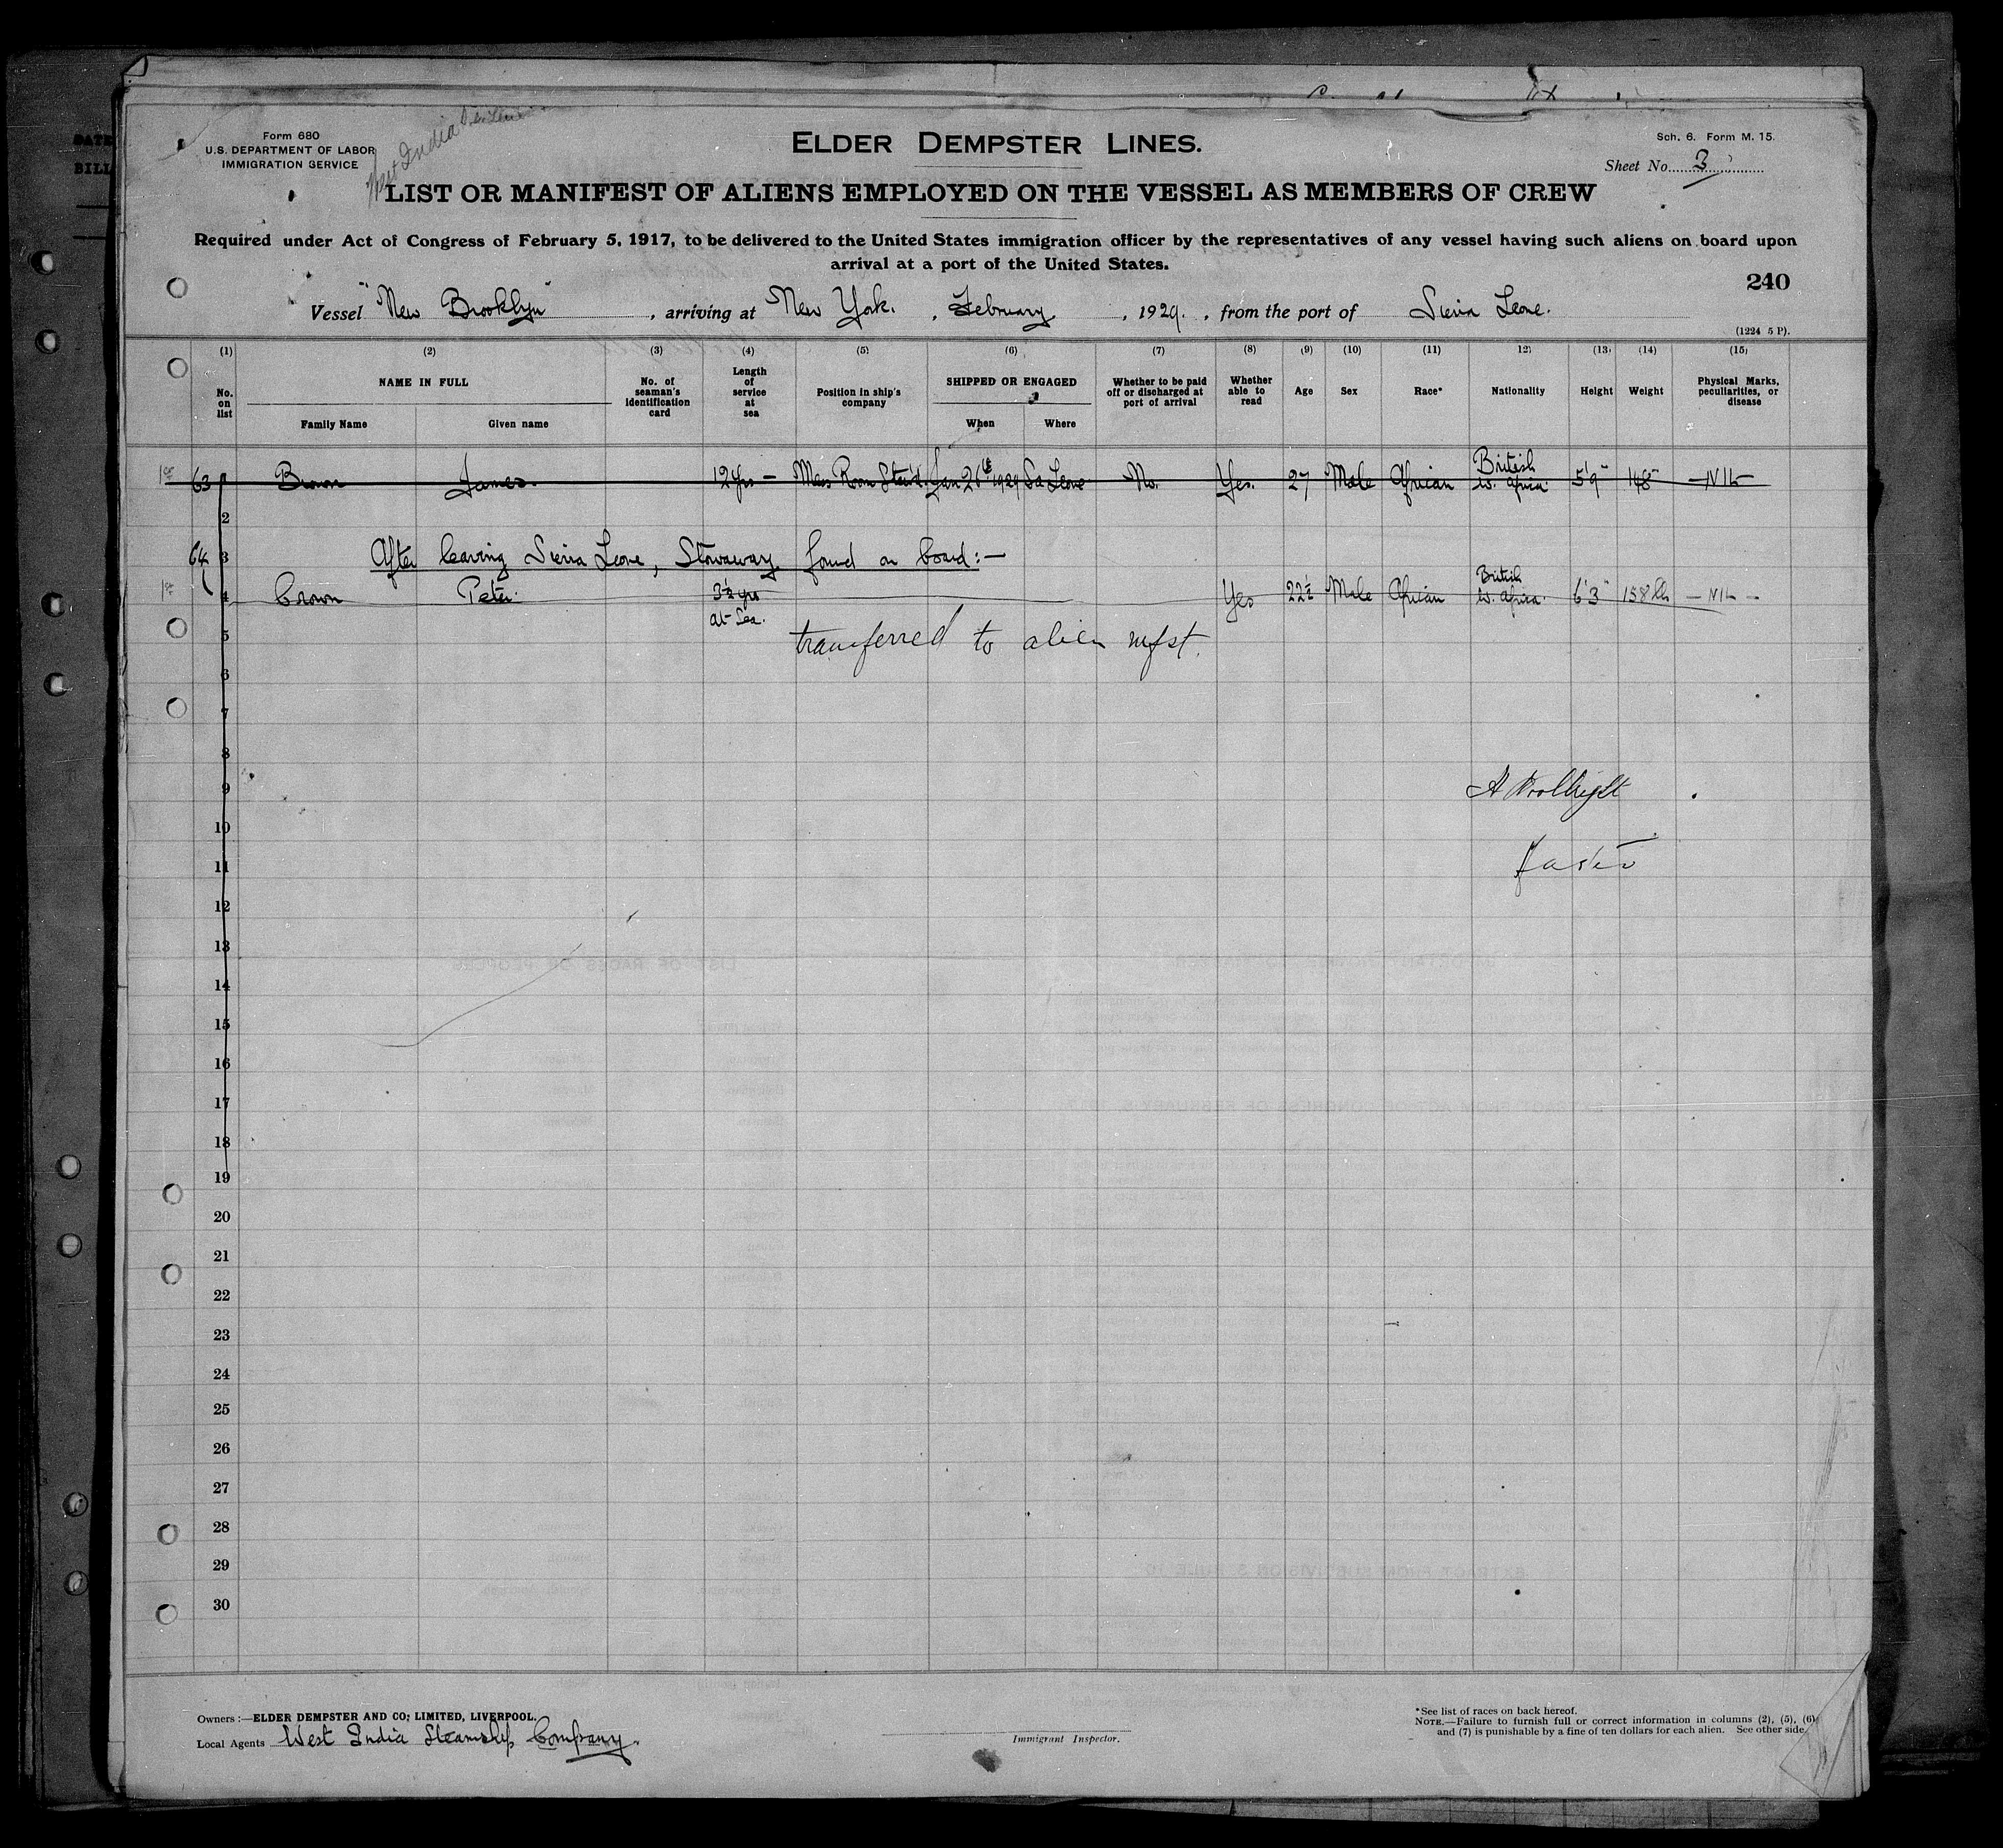 Form 680
U.S. DEPARTMENT OF LABOR
IMMIGRATION SERVICE
West India
ELDER DEMPSTER LINES.
Sch. 6. Form M. 15.
Sheet No. 3
LIST OR MANIFEST OF ALIENS EMPLOYED ON THE VESSEL AS MEMBERS OF CREW
Required under Act of Congress of February 5, 1917, to be delivered to the United States immigration officer by the representatives of any vessel having such aliens on board upon
arrival at a port of the United States.
240
Vessel "New Brooklyn", arriving at New York, February, 1929, from the port of Sierra Leone.
(1224 5 P).
(1) (2) (3) (4) (5) (6) (7) (8) (9) (10) (11) 12) (13) (14) (15)
No. on list
NAME IN FULL
Family Name
Given name
No. of seaman's identification card
Length of service at sea
Position in ship's company
SHIPPED OR ENGAGED
When
Where
Whether to be paid off or discharged at port of arrival
Whether able to read
Age
Sex
Race*
Nationality
Height
Weight
Physical Marks, peculiarities, or disease
63 Brown James. 12 yrs - Mess Room Stew'd. Jan 26th 1929 Sa Leone No. Yes. 27 Male African British W. Africa. 5'9" 148 - NIL -
2
64 3 After leaving Sierra Leone, Stowaway found on board:-
4 Brown Peter. 3½ yrs at Sea. Yes 22½ Male African British W. Africa. 6'3" 158 lb - NIL -
5 transferred to alien mfst.
6
7
8
9
10
11
12
13
14
15
16
17
18
19
20
21
22
23
24
25
26
27
28
29
30
Owners :—ELDER DEMPSTER AND CO; LIMITED, LIVERPOOL.
Local Agents West India Steamship Company.
Immigrant Inspector.
*See list of races on back hereof.
NOTE.—Failure to furnish full or correct information in columns (2), (5), (6)
and (7) is punishable by a fine of ten dollars for each alien. See other side.